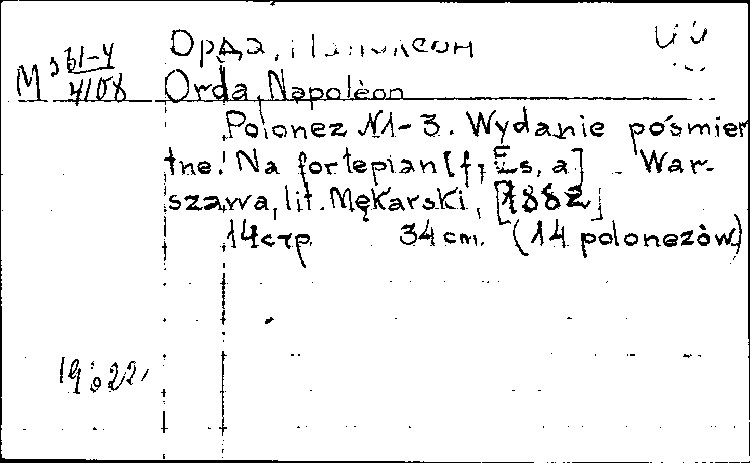 Орда, Наполеон
М 3 61-4
4108
Orda, Napolèon
Polonez N1-3. Wydanie pośmier
tne. Na fortepian [f, Es, a] War-
szawa, lit. Mękarski, [1882]
14 стр. 34 cm. (14 polonezów)